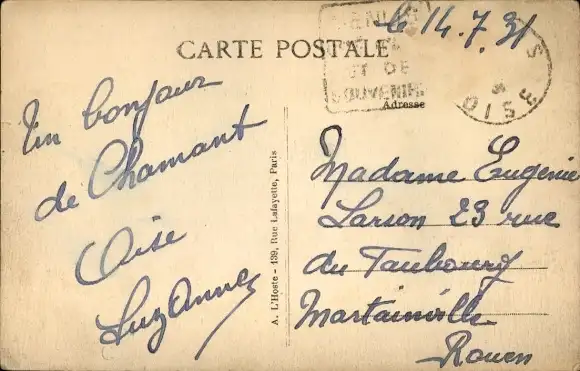 CARTE POSTALE
le 14.7.31
ET DE
SOUVENIR
OISE
Adresse
Un bonjour
de Chamant
Oise
Suzanne
A. L'Hoste - 139, Rue Lafayette, Paris
Madame Eugénie
Larson 23 rue
du Faubourg
Martainville
Rouen